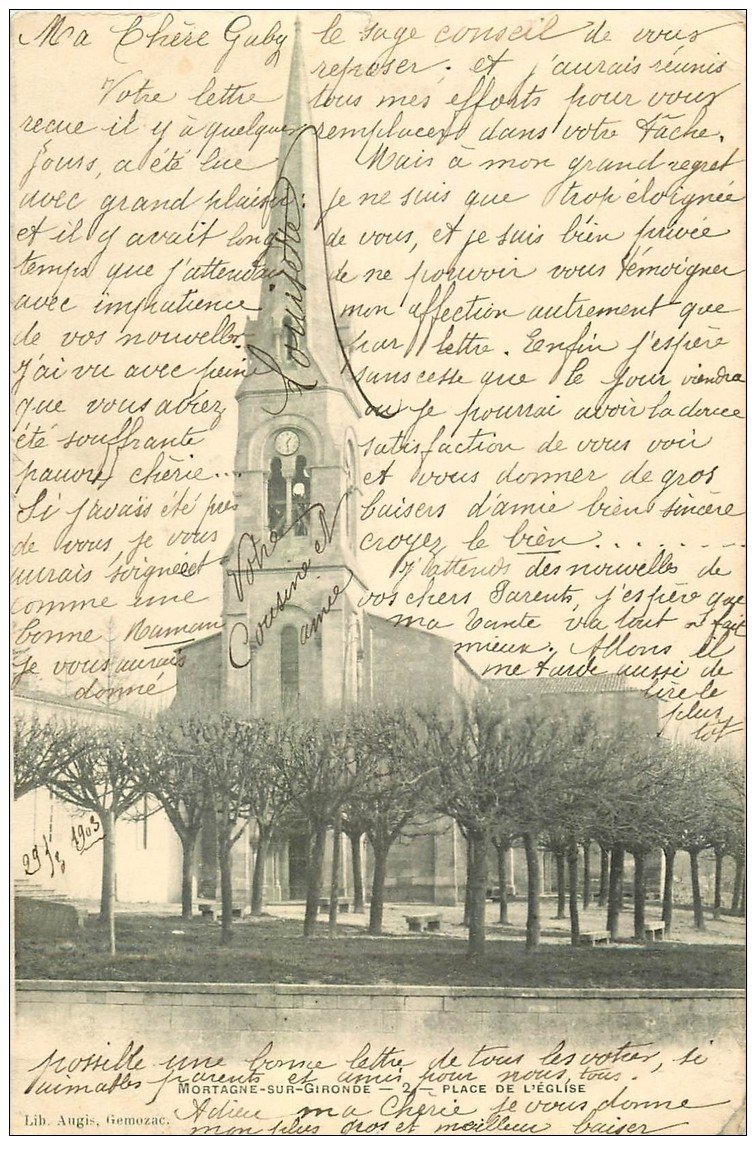 Ma Chère Gaby
Votre lettre
recue il y à quelques
jours, a été lue
avec grand plaisir,
et il y avait long
temps que j'attendais
avec impatience
de vos nouvelles.
J'ai vu avec peine
que vous aviez
été souffrante
pauvre chérie...
Si j'avais été près
de vous, je vous
aurais soignée et
comme une
bonne Maman
Je vous aurais
donné
le sage conseil de vous
reposer. et j'aurais réunis
tous mes efforts pour vous
remplacer dans votre tâche.
Mais à mon grand regret
je ne suis que trop éloignée
de vous, et je suis bien privée
de ne pouvoir vous témoigner
mon affection autrement que
par lettre. Enfin j'espère
sans cesse que le jour viendra
ou je pourrai avoir la douce
satisfaction de vous voir
et vous donner de gros
baisers d'amie bien sincère
croyez le bien........
J'attends des nouvelles de
vos chers Parents, j'espère que
ma Tante va tout à fait
mieux. Allons il
me tarde aussi de
lire le
plus
tôt
possible une bonne lettre de tous les votres, si
aimables parents et amis pour nous tous.
Adieu ma Chérie je vous donne
mon plus gros et meilleur baiser
Votre
Cousine et
amie
Louisette
1903
MORTAGNE-SUR-GIRONDE — 2 — PLACE DE L'ÉGLISE
Lib. Augis, Gemozac.